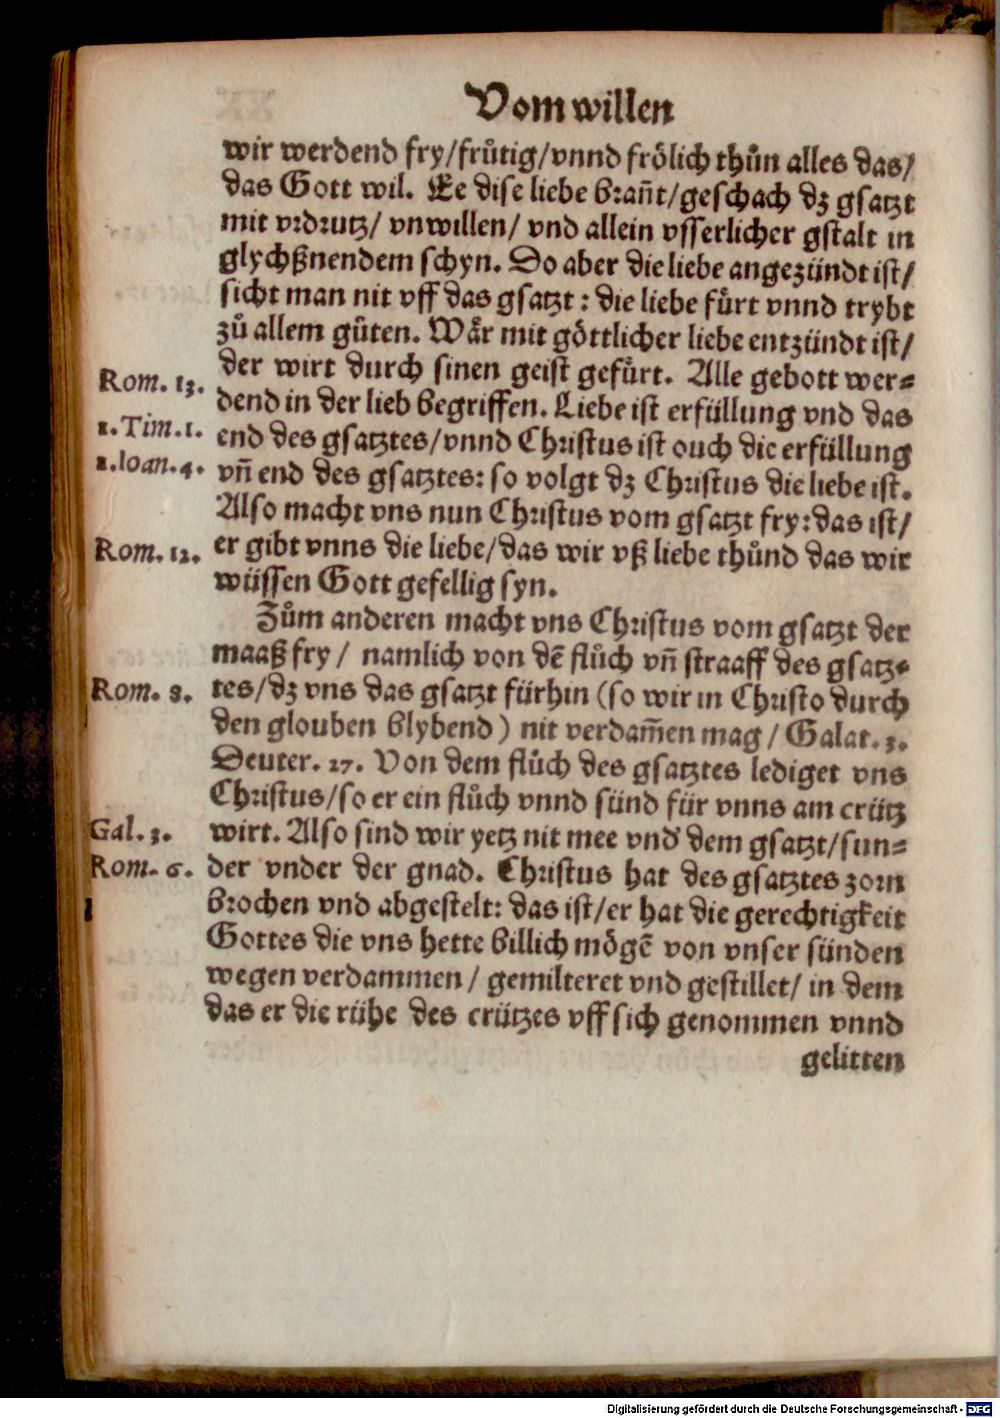 Vom willen
wir werdend fry/frůtig/vnnd frölich thůn alles das/
das Gott wil. Ee dise liebe brañt/geschach dz gsatzt
mit vrdrutz/ vnwillen/ vnd allein vsserlicher gstalt in
glychßnendem schyn. So aber die liebe angezündt ist/
sicht man nit vff das gsatzt: die liebe fůrt vnnd trybt
zů allem gůten. Wår mit göttlicher liebe entzündt ist/
der wirt durch sinen geist gefůrt. Alle gebott wer⸗
Rom. 13.
dend in der lieb begriffen. Liebe ist erfüllung vnd das
1.Tim.1.
end des gsatztes/vnnd Christus ist ouch die erfüllung
1.Ioan.4.
vñ end des gsatztes: so volgt dz Christus die liebe ist.
Also macht vns nun Christus vom gsatzt fry: das ist/
Rom. 12.
er gibt vnns die liebe/das wir vß liebe thůnd das wir
wüssen Gott gefellig syn.
Zům anderen macht vns Christus vom gsatzt der
maaß fry / namlich von dē flůch vñ straaff des gsatz⸗
Rom. 8.
tes/dz vns das gsatzt fürhin (so wir in Christo durch
den glouben blybend) nit verdam̄en mag / Galat. 3.
Deuter. 27. Von dem flůch des gsatztes lediget vns
Christus/so er ein flůch vnnd sünd für vnns am crütz
Gal. 3.
wirt. Also sind wir yetz nit mee vnd' dem gsatzt/sun⸗
Rom. 6.
der vnder der gnad. Christus hat des gsatztes zorn
brochen vnd abgestelt: das ist/er hat die gerechtigkeit
Gottes die vns hette billich mögē von vnser sünden
wegen verdammen / gemilteret vnd gestillet/ in dem
das er die růhe des crützes vff sich genommen vnnd
gelitten
Digitalisierung gefördert durch die Deutsche Forschungsgemeinschaft - DFG